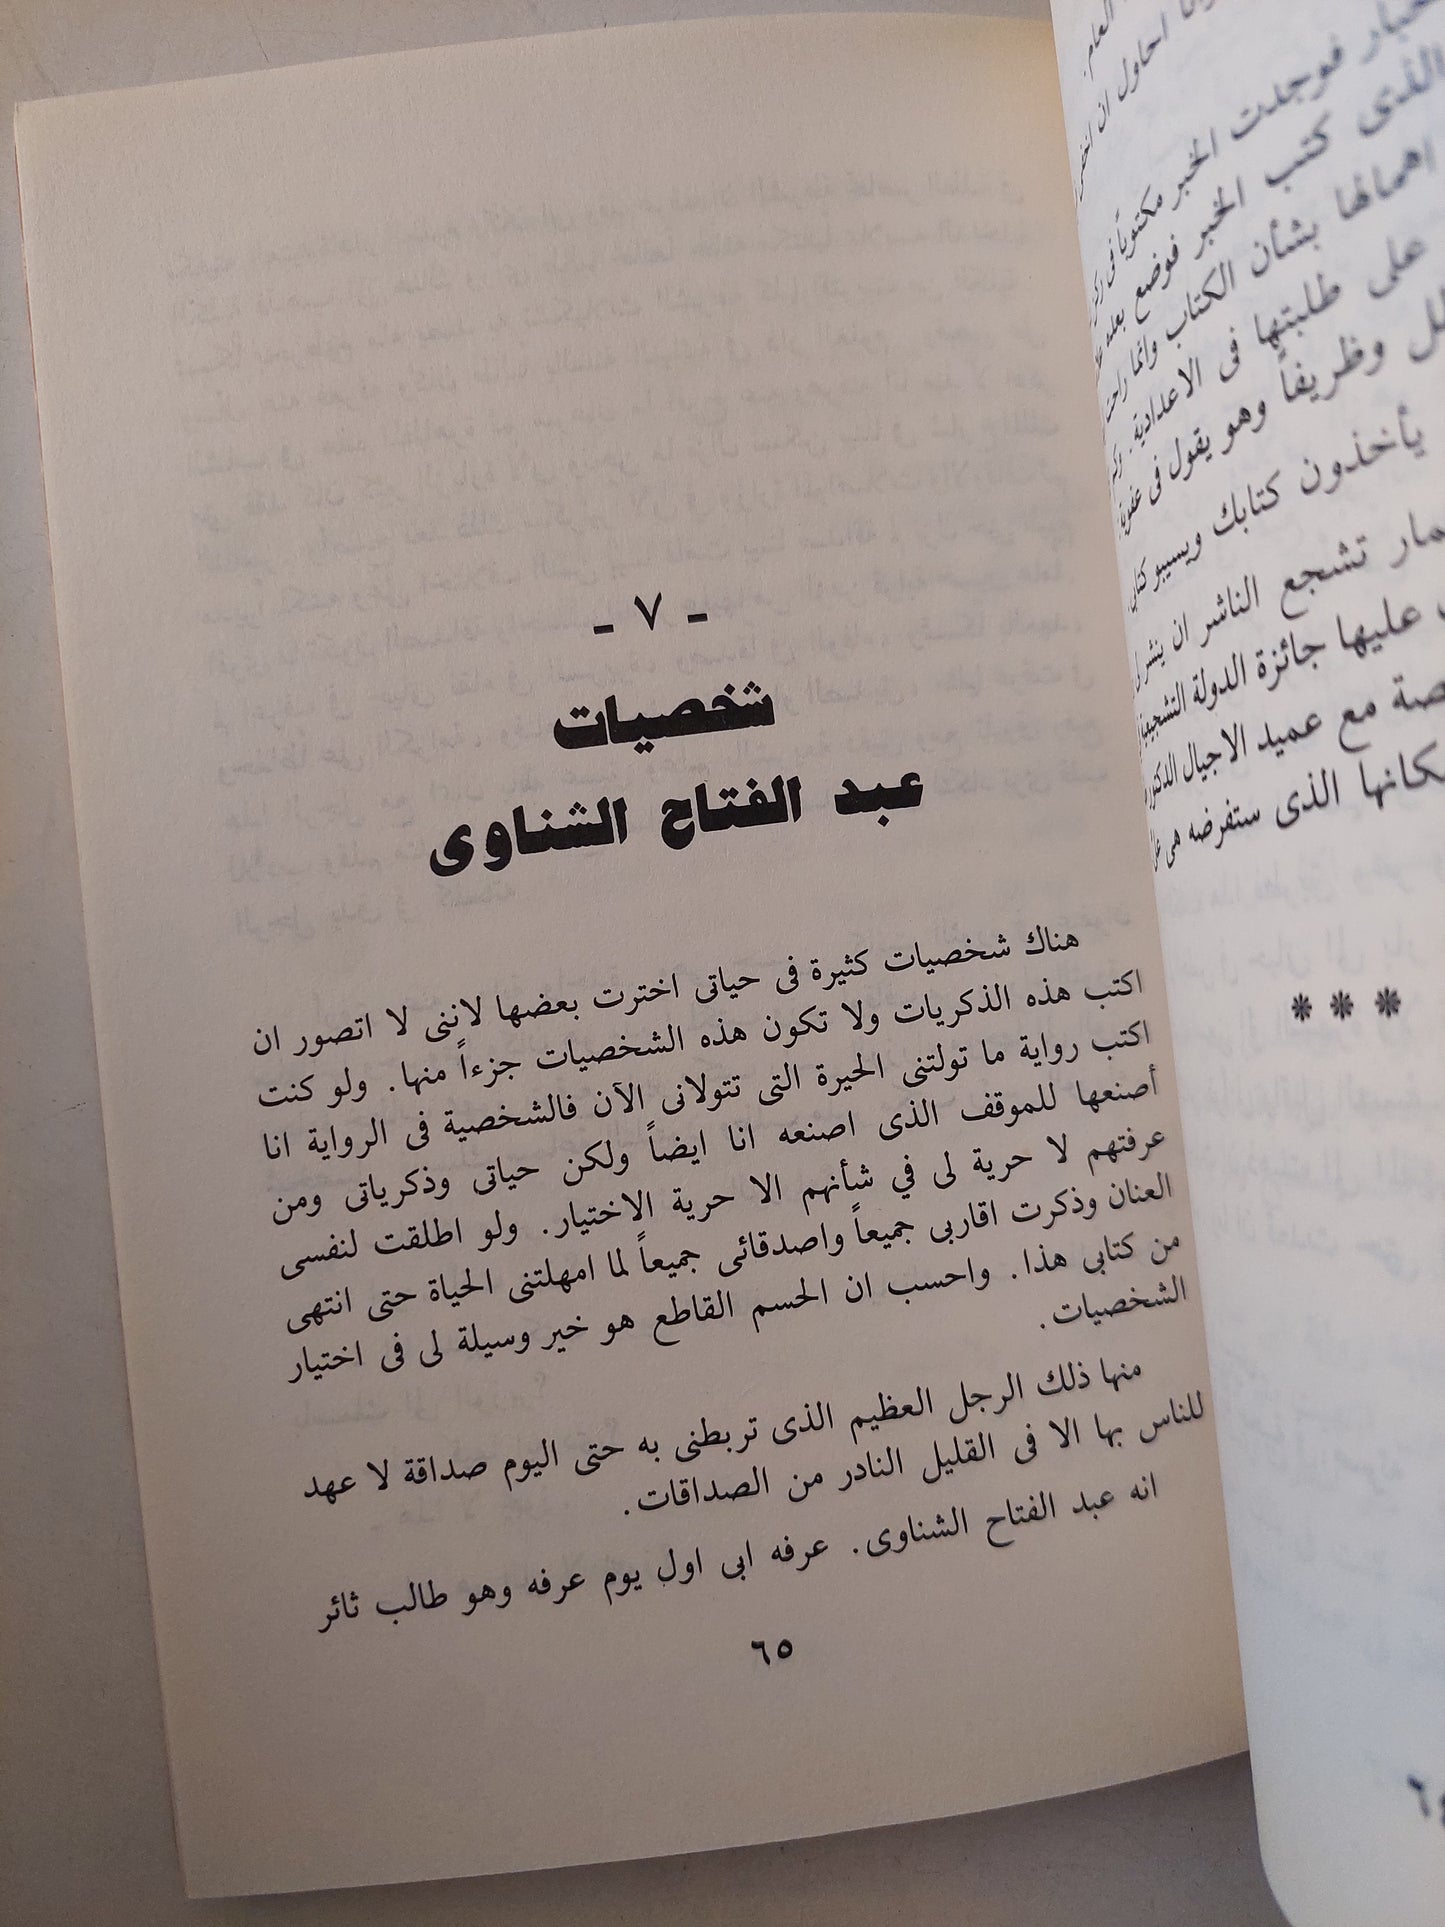 - ٧ -
شخصيات
عبد الفتاح الشناوى
هناك شخصيات كثيرة فى حياتى اخترت بعضها لاننى لا اتصور ان
اكتب هذه الذكريات ولا تكون هذه الشخصيات جزءاً منها. ولو كنت
اكتب رواية ما تولتنى الحيرة التى تتولانى الآن فالشخصية فى الرواية انا
أصنعها للموقف الذى اصنعه انا ايضاً ولكن حياتى وذكرياتى ومن
عرفتهم لا حرية لى في شأنهم الا حرية الاختيار. ولو اطلقت لنفسى
العنان وذكرت اقاربى جميعاً واصدقائى جميعاً لما امهلتنى الحياة حتى انتهى
من كتابى هذا. واحسب ان الحسم القاطع هو خير وسيلة لى فى اختيار
الشخصيات.
منها ذلك الرجل العظيم الذى تربطنى به حتى اليوم صداقة لا عهد
للناس بها الا فى القليل النادر من الصداقات.
انه عبد الفتاح الشناوى. عرفه ابى اول يوم عرفه وهو طالب ثائر
٦٥
العام.
احاول ان
فوجدت الخبر مكتوباً فى
الذى كتب الخبر فوضع
اهمالها بشأن الكتاب وانما راحت
على طلبتها فى الاعدادية.
وظريفاً وهو يقول فى عفوية:
يأخذون كتابك ويسيبو
تشجع الناشر ان ينشر
عليها جائزة الدولة
مع عميد الاجيال الدكتور
الذى ستفرضه هى
* * *